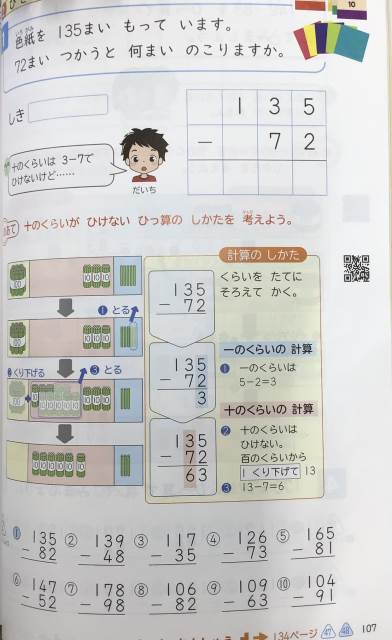 10
1
いろ がみ
色紙を 135まい もって います。
72まい つかうと 何まい のこりますか。
しき
1 3 5
− 7 2
十のくらいは 3−7で
ひけないけど……
だいち
めあて 十のくらいが ひけない ひっ算の しかたを 考えよう。
計算の しかた
くらいを たてに
そろえて かく。
135
− 72
100
10 10 10
❶ とる
100
10 10 10
135
− 72
3
一のくらいの 計算
❶ 一のくらいは
5−2=3
❷ くり下げる
❸ とる
十のくらいの 計算
❷ 十のくらいは
ひけない。
百のくらいから
1 くり下げて 13
❸ 13−7=6
135
− 72
63
① 135
− 82
② 139
− 48
③ 117
− 35
④ 126
− 73
⑤ 165
− 81
⑥ 147
− 52
⑦ 178
− 98
⑧ 106
− 82
⑨ 109
− 63
⑩ 104
− 91
134ページ 47 48 107